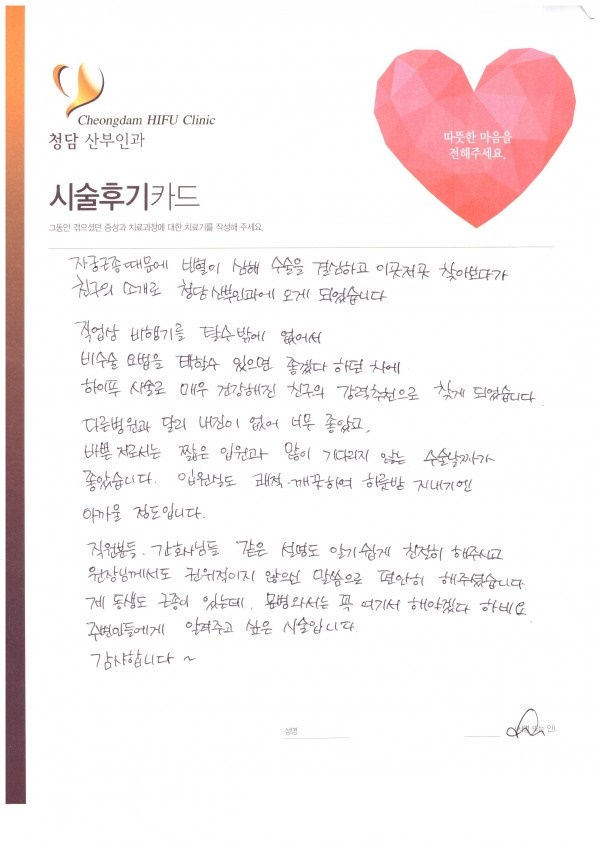 Cheongdam HIFU Clinic
청담 산부인과
따뜻한 마음을
전해주세요.
시술후기카드
그동안 겪으셨던 증상과 치료과정에 대한 치료기를 작성해 주세요.
자궁근종때문에 빈혈이 심해 수술을 결심하고 이곳저곳 찾아보다가
친구의 소개로 청담산부인과에 오게 되었습니다
직업상 비행기를 탈수밖에 없어서
비수술 요법을 택할수 있으면 좋겠다 하던 차에
하이푸 시술로 매우 건강해진 친구의 강력추천으로 찾게 되었습니다
다른병원과 달리 내진이 없어 너무 좋았고,
바쁜 저로서는 짧은 입원과 많이 기다리지 않는 수술날짜가
좋았습니다. 입원실도 쾌적·깨끗하여 하룻밤 지내기엔
아까울 정도입니다.
직원분들·간호사님들 같은 설명도 알기쉽게 친절히 해주시고
원장님께서도 권위적이지 않으신 말씀으로 편안히 해주셨습니다
제 동생도 근종이 있는데, 문병와서는 꼭 여기서 해야겠다 하네요
주변인들에게 알려주고 싶은 시술입니다
감사합니다 ~
성명
인)